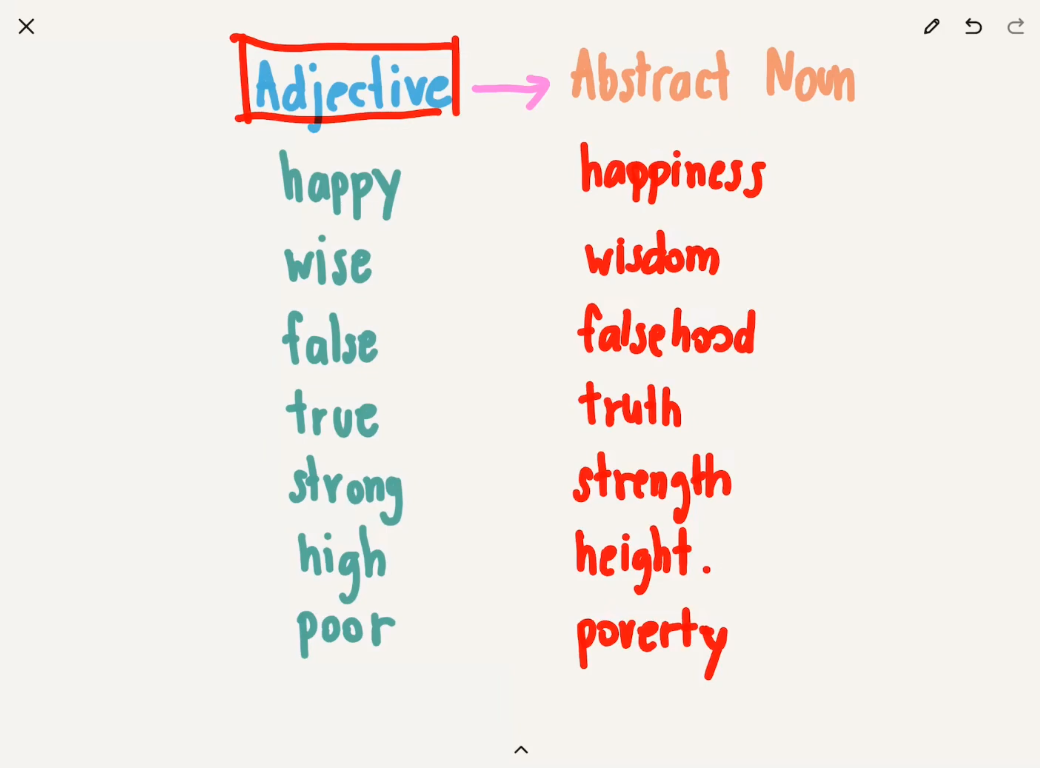 Adjective → Abstract Noun
happy happiness
wise wisdom
false falsehood
true truth
strong strength
high height.
poor poverty